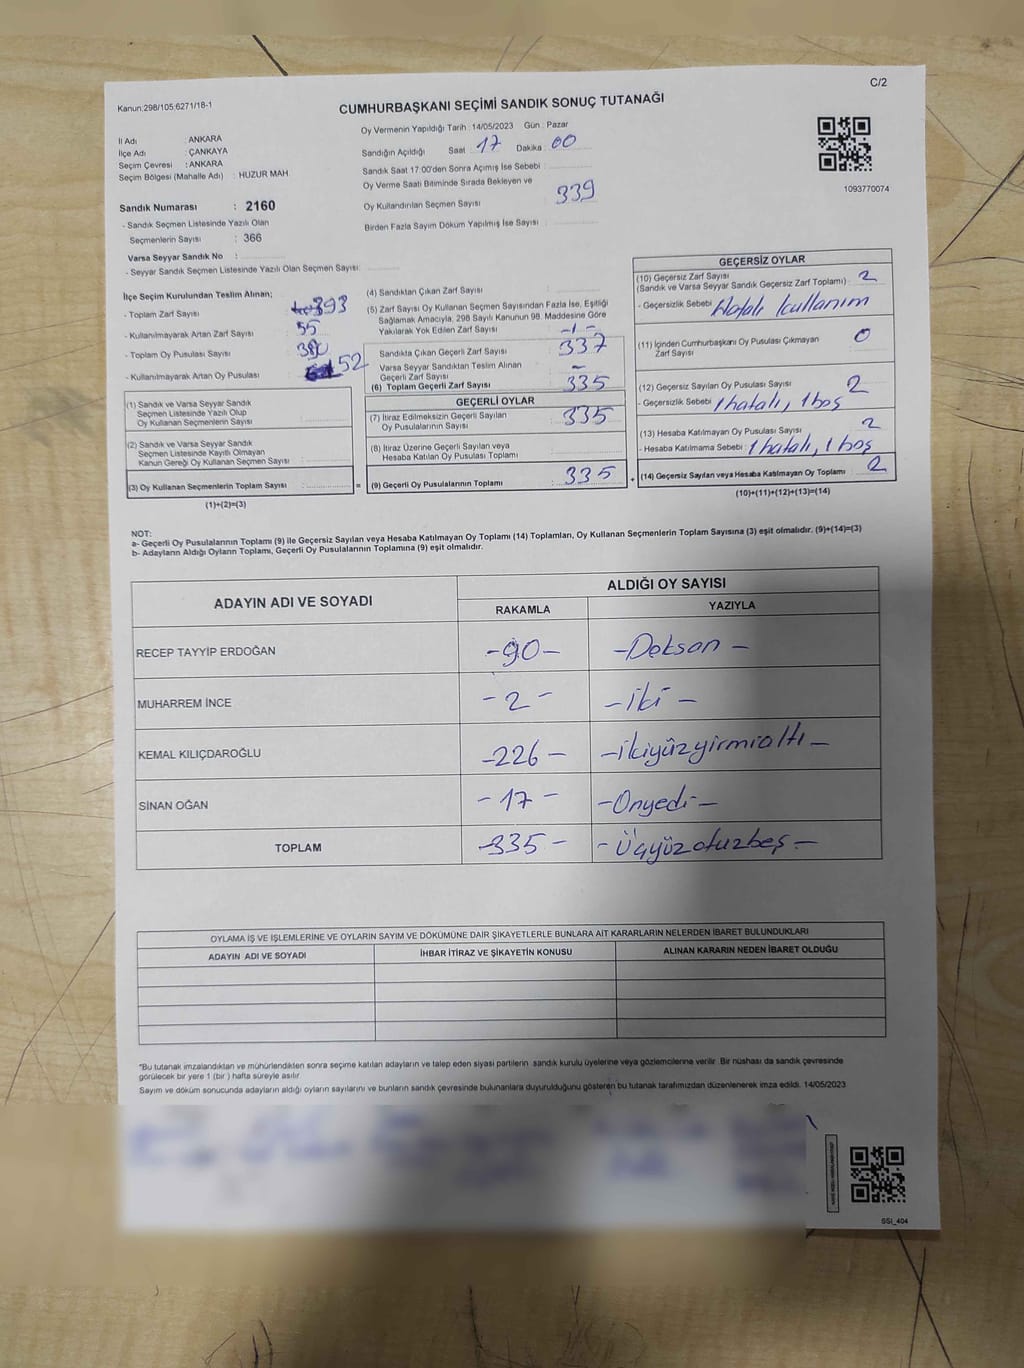 C/2
Kanun:298/105;6271/18-1
CUMHURBAŞKANI SEÇİMİ SANDIK SONUÇ TUTANAĞI
İl Adı : ANKARA
İlçe Adı : ÇANKAYA
Seçim Çevresi : ANKARA
Seçim Bölgesi (Mahalle Adı) : HUZUR MAH.
Sandık Numarası : 2160
- Sandık Seçmen Listesinde Yazılı Olan
Seçmenlerin Sayısı : 366
Varsa Seyyar Sandık No :
- Seyyar Sandık Seçmen Listesinde Yazılı Olan Seçmen Sayısı:
Oy Vermenin Yapıldığı Tarih : 14/05/2023 Gün : Pazar
Sandığın Açıldığı Saat : 17 Dakika : 00
Sandık Saat 17:00'den Sonra Açımış İse Sebebi :
Oy Verme Saati Bitiminde Sırada Bekleyen ve
Oy Kullandırılan Seçmen Sayısı : 339
Birden Fazla Sayım Döküm Yapılmış İse Sayısı :
1093770074
İlçe Seçim Kurulundan Teslim Alınan;
- Toplam Zarf Sayısı : 393
- Kullanılmayarak Artan Zarf Sayısı : 55
- Toplam Oy Pusulası Sayısı :
- Kullanılmayarak Artan Oy Pusulası : 52
(1) Sandık ve Varsa Seyyar Sandık
Seçmen Listesinde Yazılı Olup
Oy Kullanan Seçmenlerin Sayısı :
(2) Sandık ve Varsa Seyyar Sandık
Seçmen Listesinde Kayıtlı Olmayan
Kanun Gereği Oy Kullanan Seçmen Sayısı :
(3) Oy Kullanan Seçmenlerin Toplam Sayısı : =
(1)+(2)=(3)
(4) Sandıktan Çıkan Zarf Sayısı :
(5) Zarf Sayısı Oy Kullanan Seçmen Sayısından Fazla İse, Eşitliği
Sağlamak Amacıyla, 298 Sayılı Kanunun 98. Maddesine Göre
Yakılarak Yok Edilen Zarf Sayısı : -1-
Sandıkta Çıkan Geçerli Zarf Sayısı : 337
Varsa Seyyar Sandıktan Teslim Alınan
Geçerli Zarf Sayısı : -
(6) Toplam Geçerli Zarf Sayısı : 335
GEÇERLİ OYLAR
(7) İtiraz Edilmeksizin Geçerli Sayılan
Oy Pusulasının Sayısı : 335
(8) İtiraz Üzerine Geçerli Sayılan veya
Hesaba Katılan Oy Pusulası Toplamı :
(9) Geçerli Oy Pusulalarının Toplamı : 335 +
GEÇERSİZ OYLAR
(10) Geçersiz Zarf Sayısı
(Sandık ve Varsa Seyyar Sandık Geçersiz Zarf Toplamı) : 2
- Geçersizlik Sebebi : Hatalı kullanım
(11) İçinden Cumhurbaşkanı Oy Pusulası Çıkmayan
Zarf Sayısı : 0
(12) Geçersiz Sayılan Oy Pusulası Sayısı : 2
- Geçersizlik Sebebi : 1 hatalı, 1 boş
(13) Hesaba Katılmayan Oy Pusulası Sayısı : 2
- Hesaba Katılmama Sebebi : 1 hatalı, 1 boş
(14) Geçersiz Sayılan veya Hesaba Katılmayan Oy Toplamı : 2
(10)+(11)+(12)+(13)=(14)
NOT:
a- Geçerli Oy Pusulalarının Toplamı (9) ile Geçersiz Sayılan veya Hesaba Katılmayan Oy Toplamı (14) Toplamları, Oy Kullanan Seçmenlerin Toplam Sayısına (3) eşit olmalıdır. (9)+(14)=(3)
b- Adayların Aldığı Oyların Toplamı, Geçerli Oy Pusulalarının Toplamına (9) eşit olmalıdır.
ADAYIN ADI VE SOYADI ALDIĞI OY SAYISI
RAKAMLA YAZIYLA
RECEP TAYYİP ERDOĞAN -90- -Doksan-
MUHARREM İNCE -2- -iki-
KEMAL KILIÇDAROĞLU -226- -ikiyüzyirmialtı-
SİNAN OĞAN -17- -Onyedi-
TOPLAM -335- -Üçyüzotuzbeş-
OYLAMA İŞ VE İŞLEMLERİNE VE OYLARIN SAYIM VE DÖKÜMÜNE DAİR ŞİKAYETLERLE BUNLARA AİT KARARLARIN NELERDEN İBARET BULUNDUKLARI
ADAYIN ADI VE SOYADI İHBAR İTİRAZ VE ŞİKAYETİN KONUSU ALINAN KARARIN NEDEN İBARET OLDUĞU
*Bu tutanak imzalandıktan ve mühürlendikten sonra seçime katılan adayların ve talep eden siyasi partilerin sandık kurulu üyelerine veya gözlemcilerine verilir. Bir nüshası da sandık çevresinde
görülecek bir yere 1 (bir ) hafta süreyle asılır.
Sayım ve döküm sonucunda adayların aldığı oyların sayılarını ve bunların sandık çevresinde bulunanlara duyurulduğunu gösteren bu tutanak tarafımızdan düzenlenerek imza edildi. 14/05/2023
SSI_404